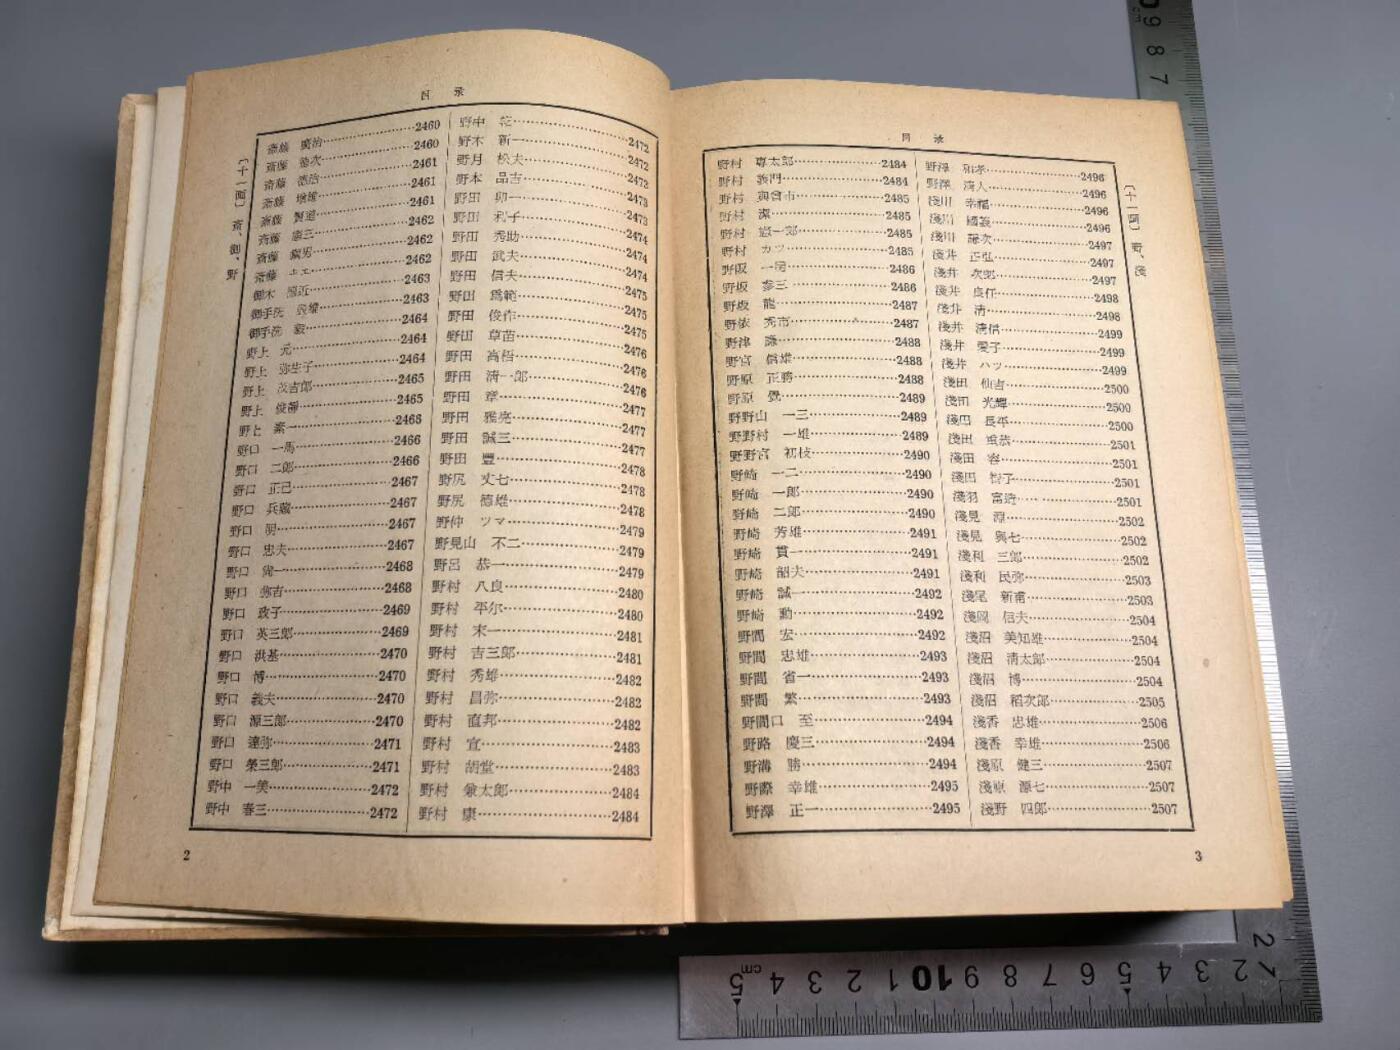 目录
〔十一画〕 斎、御、野
斎藤 廣治……2460
斎藤 徳次……2460
斎藤 徳治……2461
斎藤 ……2461
斎藤 製造……2461
斎藤 ……2462
斎藤 ……2462
斎藤 ……2462
御木 ……2463
御手洗 ……2463
御手洗 毅……2464
野上 元……2464
野上 弥生子……2464
野上 茂吉郎……2465
野上 俊靜……2465
野上 素一……2465
野口 一馬……2466
野口 二郎……2466
野口 正己……2467
野口 兵蔵……2467
野口 明……2467
野口 忠夫……2467
野口 尙一……2468
野口 弥吉……2468
野口 政子……2469
野口 英三郎……2469
野口 洪基……2470
野口 博……2470
野口 義夫……2470
野口 源三郎……2470
野口 達弥……2471
野口 榮三郎……2471
野中 一美……2472
野中 春三……2472
野中 ……2472
野木 新一……2472
野月 松夫……2473
野本 品吉……2473
野田 卯一……2473
野田 利子……2474
野田 秀助……2474
野田 武夫……2474
野田 信夫……2475
野田 爲範……2475
野田 俊作……2475
野田 草苗……2476
野田 高梧……2476
野田 清一郎……2476
野田 章……2477
野田 雅亮……2477
野田 誠三……2477
野田 豐……2478
野尻 丈七……2478
野尻 德雄……2478
野仲 ツマ……2479
野見山 不二……2479
野呂 恭一……2479
野村 八良……2480
野村 平尔……2480
野村 末一……2481
野村 吉三郎……2481
野村 秀雄……2482
野村 昌弥……2482
野村 直邦……2482
野村 宣……2483
野村 胡堂……2483
野村 兼太郎……2484
野村 康一……2484
2
目录
野村 專太郎……2484
野村 敦門……2484
野村 與曾市……2485
野村 潔……2485
野村 恵一郎……2485
野村 カツ……2485
野阪 一房……2486
野坂 参三……2486
野坂 龍……2487
野依 秀市……2487
野津 謙……2488
野宮 信雄……2488
野原 正勝……2488
野原 覺……2489
野野山 一三……2489
野野村 一雄……2489
野野宮 初枝……2490
野崎 一二……2490
野崎 一郎……2490
野崎 二郎……2490
野崎 芳雄……2491
野崎 貫一……2491
野崎 韶夫……2491
野崎 誠一……2492
野崎 勳……2492
野間 宏……2492
野間 忠雄……2493
野間 省一……2493
野間 繁……2493
野間口 至……2494
野路 慶三……2494
野溝 勝……2494
野際 幸雄……2495
野澤 正一……2495
野澤 和孝……2496
野澤 淸人……2496
淺川 幸福……2496
淺川 國義……2496
淺川 謙次……2497
淺井 正弘……2497
淺井 次郎……2497
淺井 良任……2498
淺井 清……2498
淺井 淸信……2499
淺井 愛子……2499
淺井 ハツ……2499
淺田 仙吉……2500
淺田 光輝……2500
淺田 長平……2500
淺田 重恭……2501
淺田 容……2501
淺田 智子……2501
淺羽 富造……2501
淺見 淵……2502
淺見 與七……2502
淺利 三郎……2502
淺利 民弥……2503
淺尾 新甫……2503
淺岡 信夫……2504
淺沼 美知雄……2504
淺沼 清太郎……2504
淺沼 博……2504
淺沼 稻次郎……2505
淺香 忠雄……2506
淺香 幸雄……2506
淺原 健三……2507
淺原 源七……2507
淺野 四郎……2507
〔十一画〕 野、淺
3